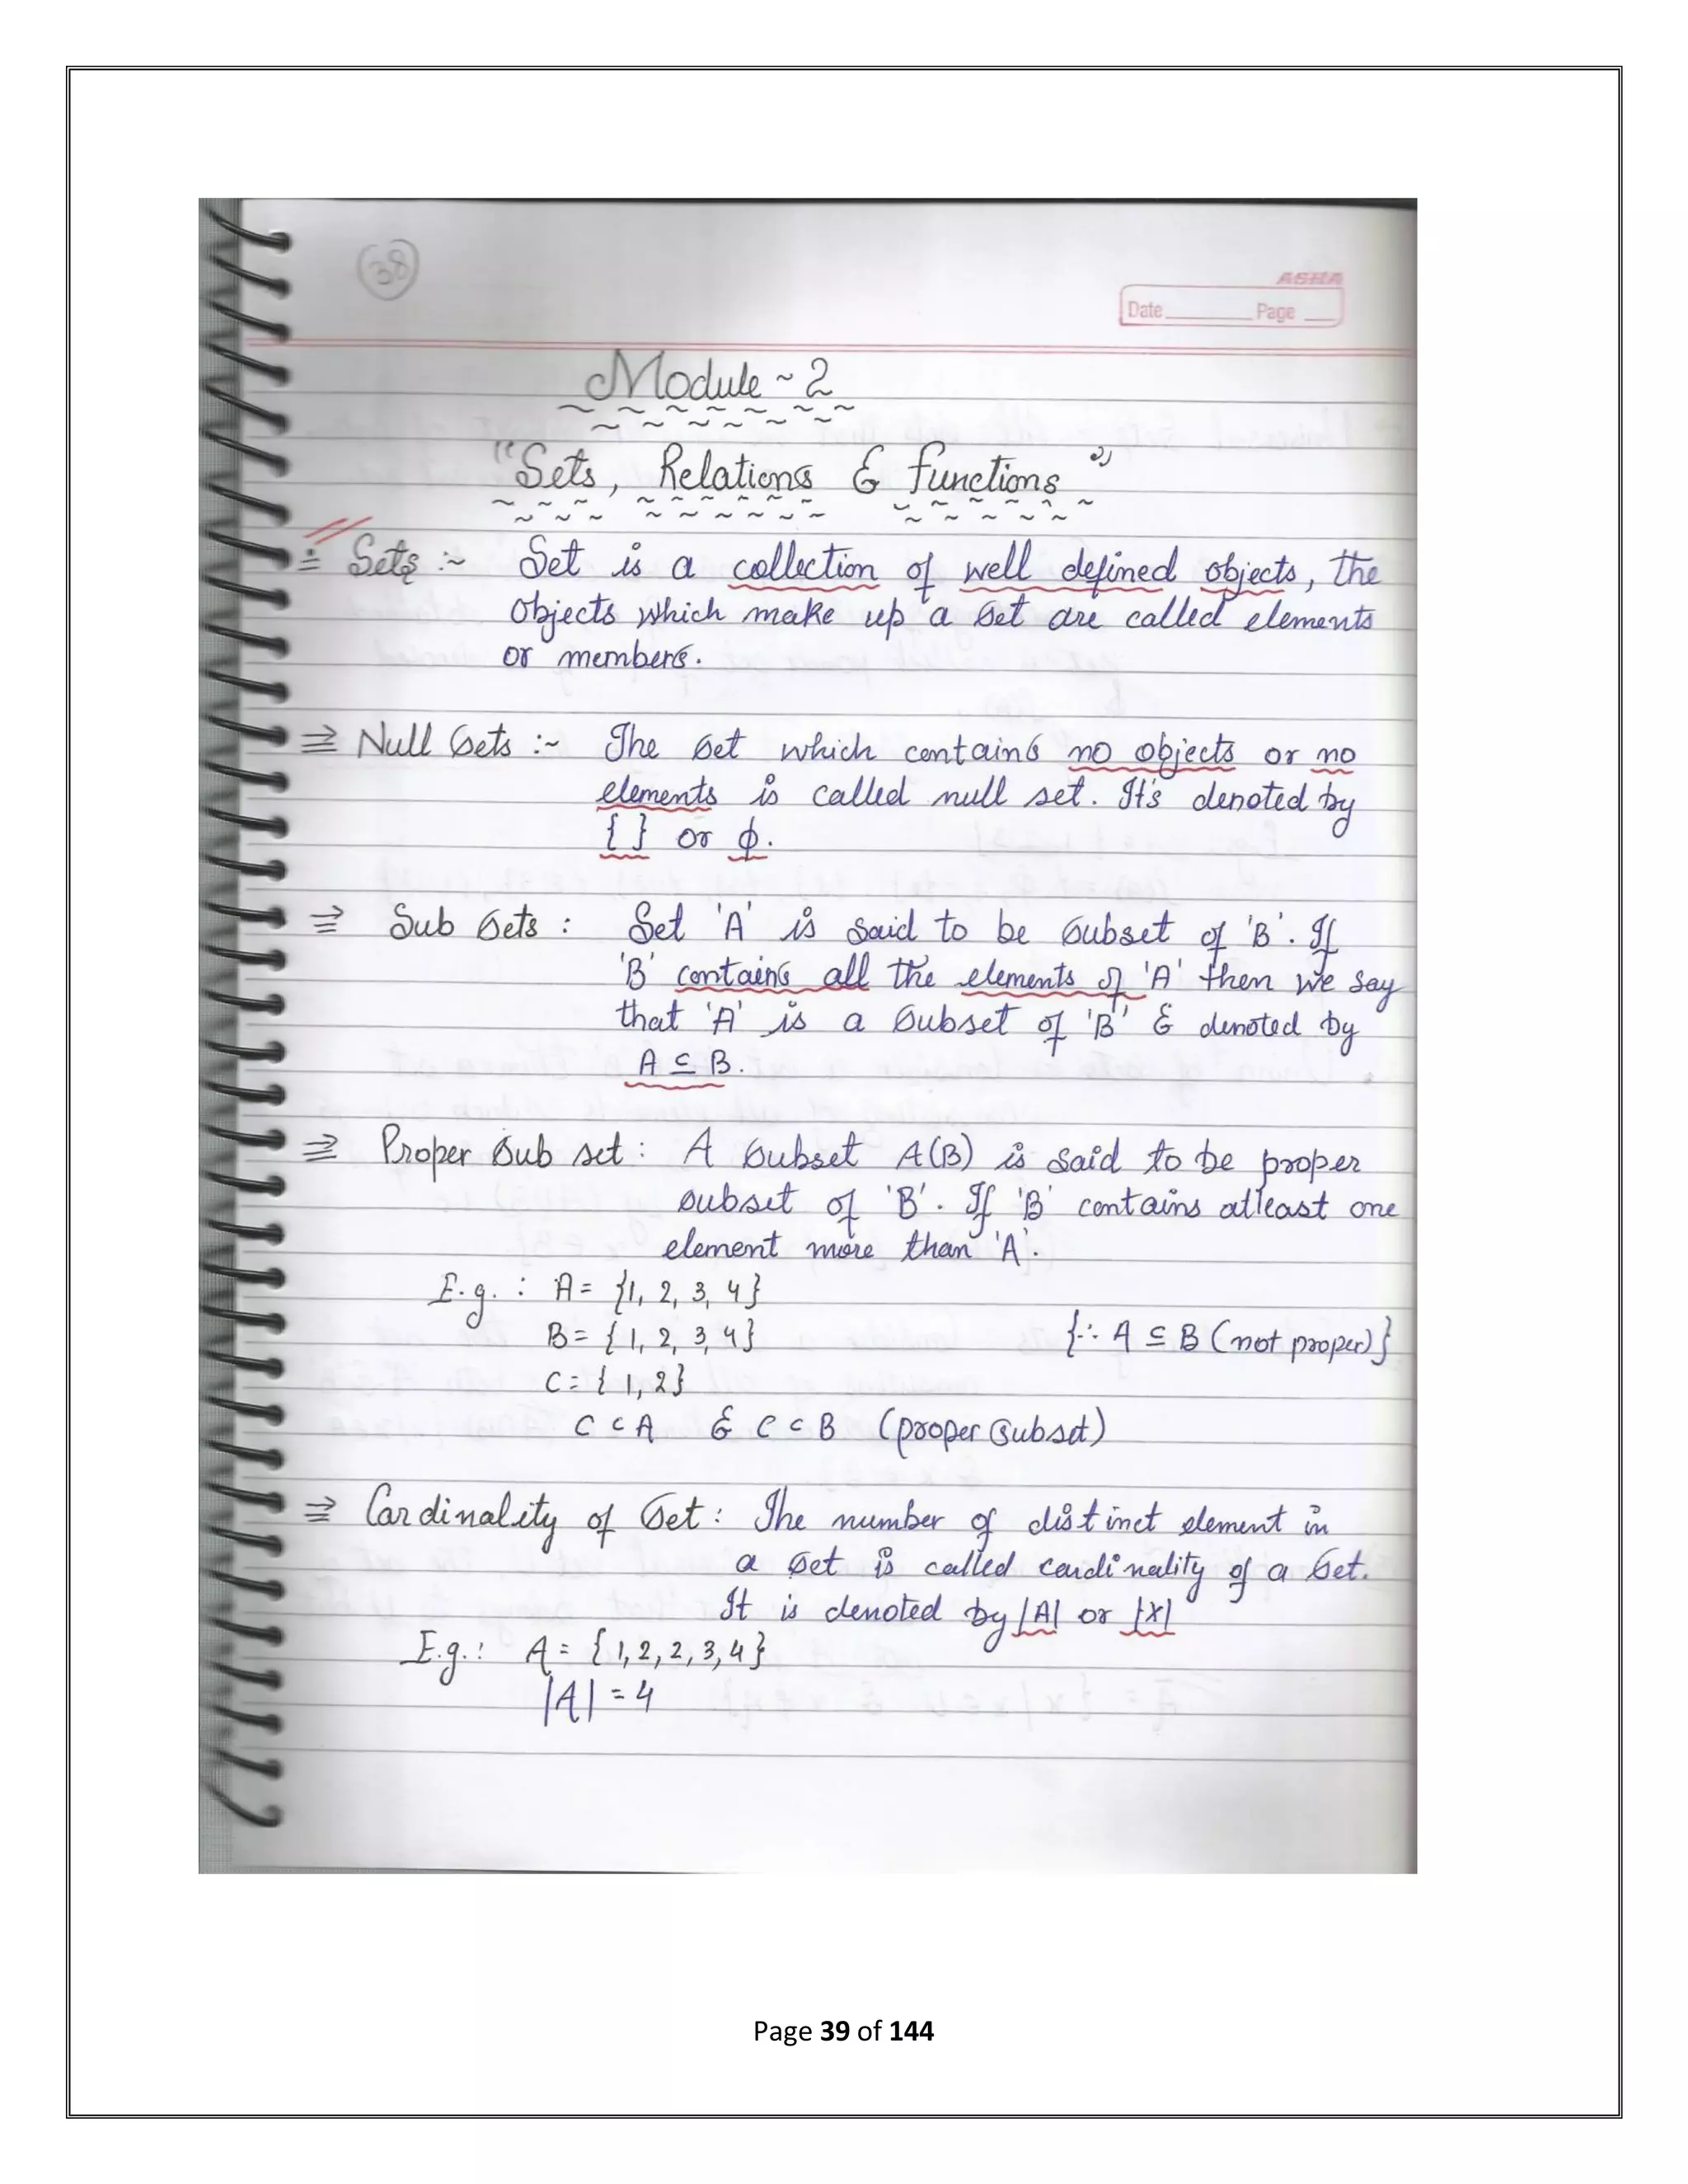 38
ASHA
Date Page
Module ~ 2
"Sets, Relations & functions"
Sets :~ Set is a collection of well defined objects, the
objects which make up a set are called elements
or members.
⇒ Null Sets :~ The set which contains no objects or no
elements is called null set. It's denoted by
{ } or ϕ.
⇒ Sub Sets : Set 'A' is said to be subset of 'B'. If
'B' contains all the elements of 'A' then we say
that 'A' is a subset of 'B' & denoted by
A ⊆ B.
⇒ Proper Sub set : A subset A(B) is said to be proper
subset of 'B'. If 'B' contains atleast one
element more than 'A'.
E.g. : A = {1, 2, 3, 4}
B = {1, 2, 3, 4} {∴ A ⊆ B (not proper)}
C = {1, 2}
C ⊂ A & C ⊂ B (proper subset)
⇒ Cardinality of Set : The number of distinct element in
a set is called cardinality of a set.
It is denoted by |A| or |X|
E.g. : A = {1, 2, 2, 3, 4}
|A| = 4
Page 39 of 144